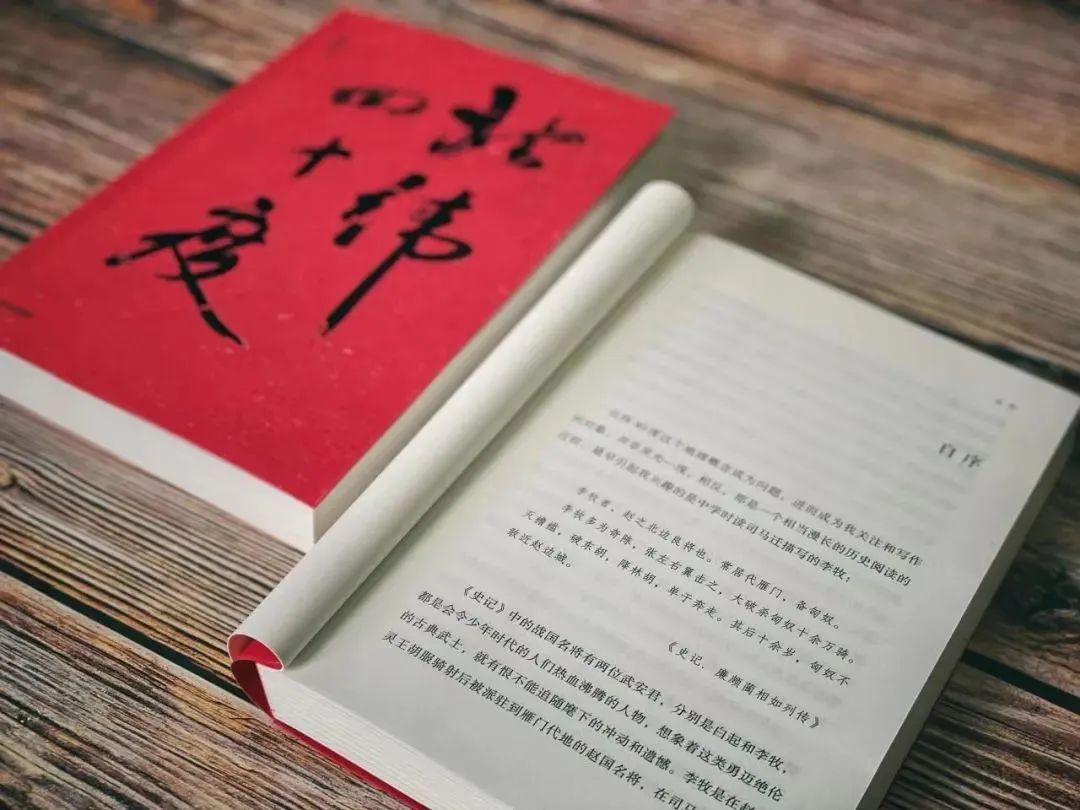 北纬
四十度
自序
自序
北纬40度这个地理概念成为问题，进而成为我关注和写作
的对象，并非灵光一现。相反，那是一个相当漫长的历史阅读的
过程。最早引起我兴趣的是中学时读司马迁描写的李牧：
李牧者，赵之北边良将也。常居代雁门，备匈奴。
李牧多为奇陈，张左右翼击之，大破杀匈奴十余万骑。
灭襜褴，破东胡，降林胡，单于奔走。其后十余岁，匈奴不
敢近赵边城。
《史记．廉颇蔺相如列传》
《史记》中的战国名将有两位武安君，分别是白起和李牧，
都是会令少年时代的人们热血沸腾的人物，想象着这类勇迈绝伦
的古典武士，就有恨不能追随麾下的冲动和遗憾。李牧是在赵
灵王胡服骑射后被派驻到雁门代地的赵国名将，在司马